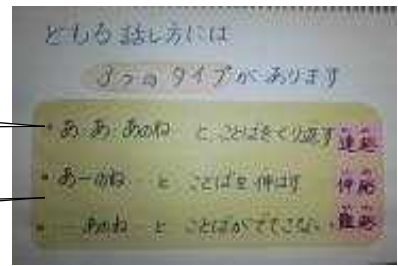 どもる話し方には
3つのタイプがあります
・あ、あ、あのね と、ことばをくり返す 連発
・あーのね と ことばを伸ばす 伸発
・……あのね と ことばがでてこない 難発